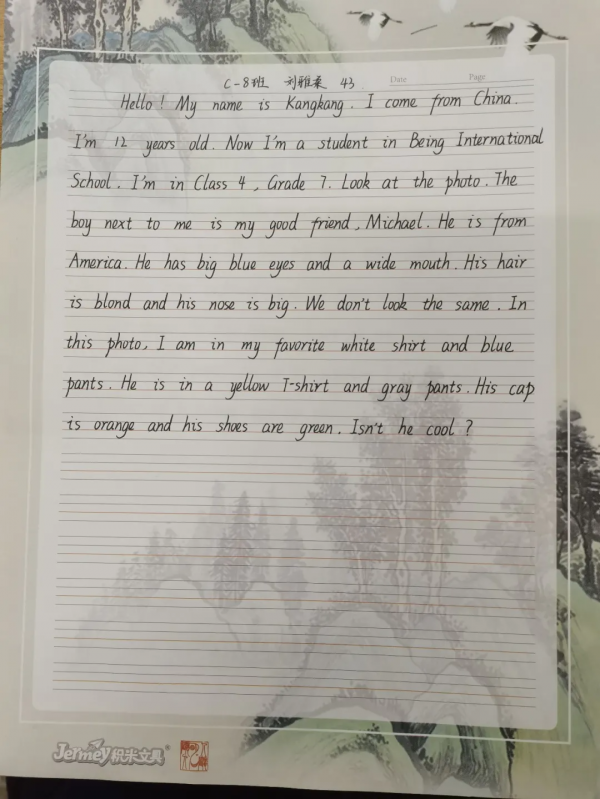 C-8班 刘雅柔 43 Date Page
Hello! My name is Kangkang. I come from China.
I'm 12 years old. Now I'm a student in Being International
School. I'm in Class 4, Grade 7. Look at the photo. The
boy next to me is my good friend, Michael. He is from
America. He has big blue eyes and a wide mouth. His hair
is blond and his nose is big. We don't look the same. In
this photo, I am in my favorite white shirt and blue
pants. He is in a yellow T-shirt and gray pants. His cap
is orange and his shoes are green. Isn't he cool?
Jermey 积米文具